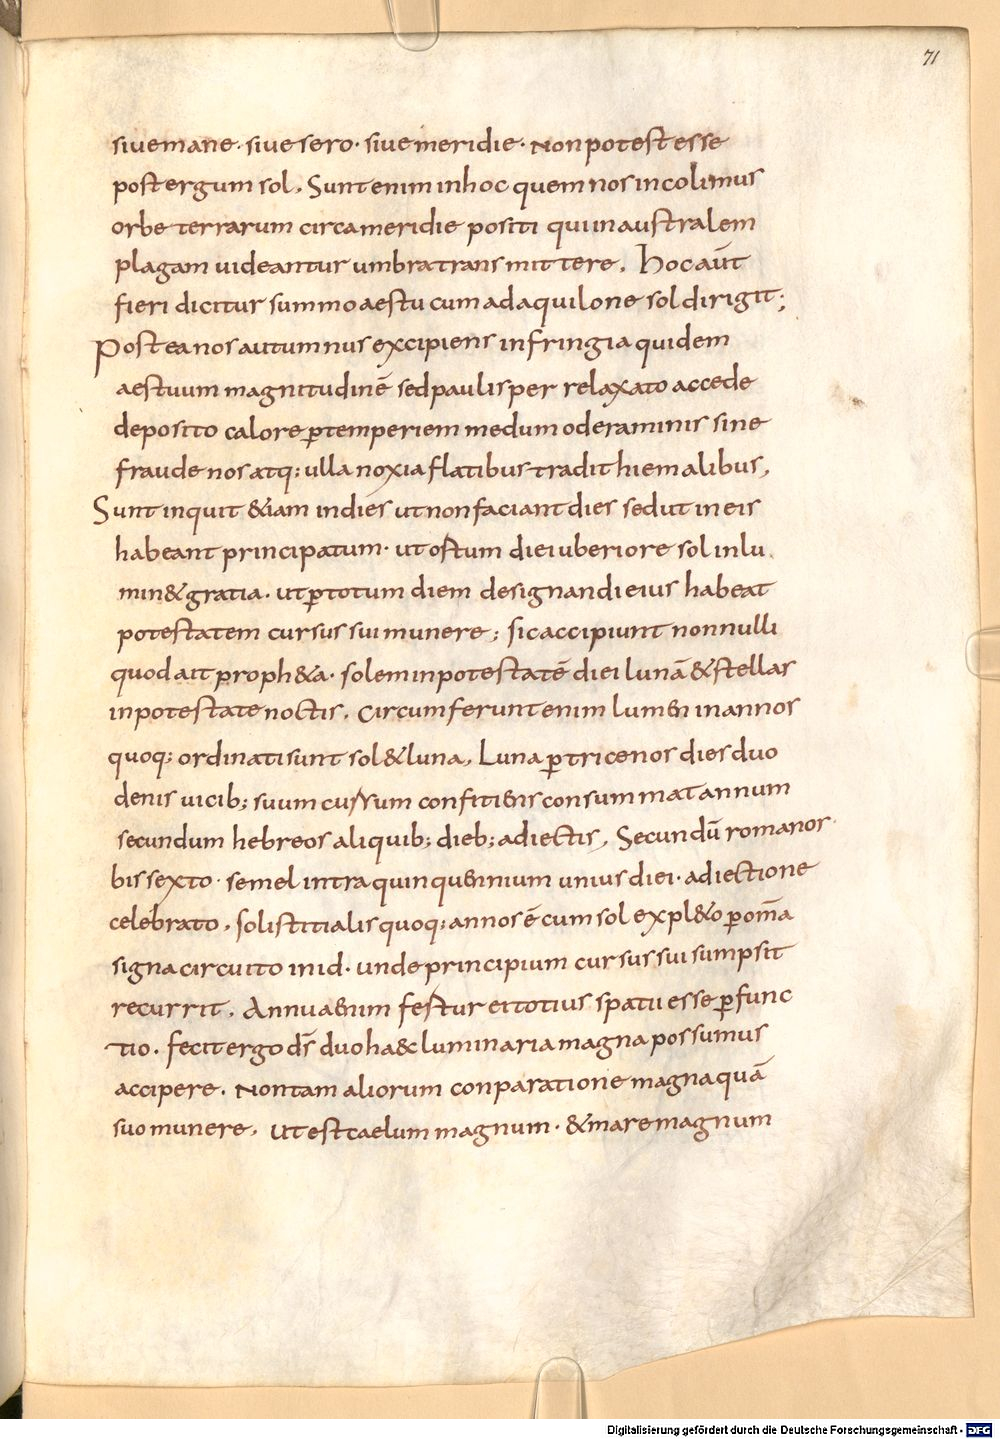 71
siue mane · siue sero · siue meridie · Non potest esse
post ergum sol, Sunt enim in hoc quem nos incolimus
orbe terrarum circa meridie positi qui in australem
plagam uideantur umbra transmittere, Hoc aut̄
fieri dicitur summo aestu cum ad aquilone sol dirigit;
Postea nos autumnus excipiens infringia quidem
aestuum magnitudinē sed paulisper relaxato accede
deposito calore ꝑ temperiem medum oderaminis sine
fraude nos atq; ulla noxia flatibus tradit hiemalibus,
Sunt inquit &iam in dies ut non faciant dies sed ut in eis
habeant principatum · ut ostum diei uberiore sol inlu
min& gratia · ut ꝑ totum diem designandi eius habeat
potestatem cursus sui munere; sic accipiunt nonnulli
quod ait proph&a · solem in potestatē diei lunā & stellas
in potestate noctis, Circumferunt enim lumen in annos
quoq; ordinati sunt sol & luna, Luna ꝑ tricenos dies duo
denis uicib; suum cursum confitiens consummat annum
secundum hebreos aliquib; dieb; adiectis, Secundū romanos
bissexto · semel intra quinquennium unius diei · adiectione
celebrato, solistitialis quoq; annos ē cum sol expl&o ꝑ om̄a
signa circuito in id · unde principium cursus sui sumpsit
recurrit, Annua enim festur ei totius spatii esse ꝑfunc
tio · fecit ergo d̄s duo haec luminaria magna possumus
accipere, Non tam aliorum conparatione magna quā
suo munere, ut est caelum magnum · & mare magnum
Digitalisierung gefördert durch die Deutsche Forschungsgemeinschaft - DFG